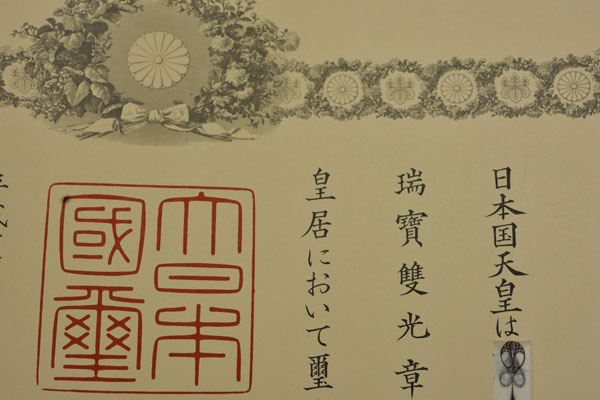 日本国天皇は
瑞寶雙光章
皇居において璽
大日本國璽